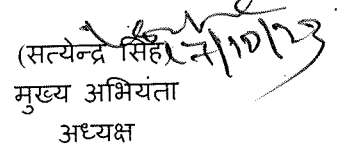 (सत्येन्द्र सिंह) 17/10/23
मुख्य अभियंता
अध्यक्ष